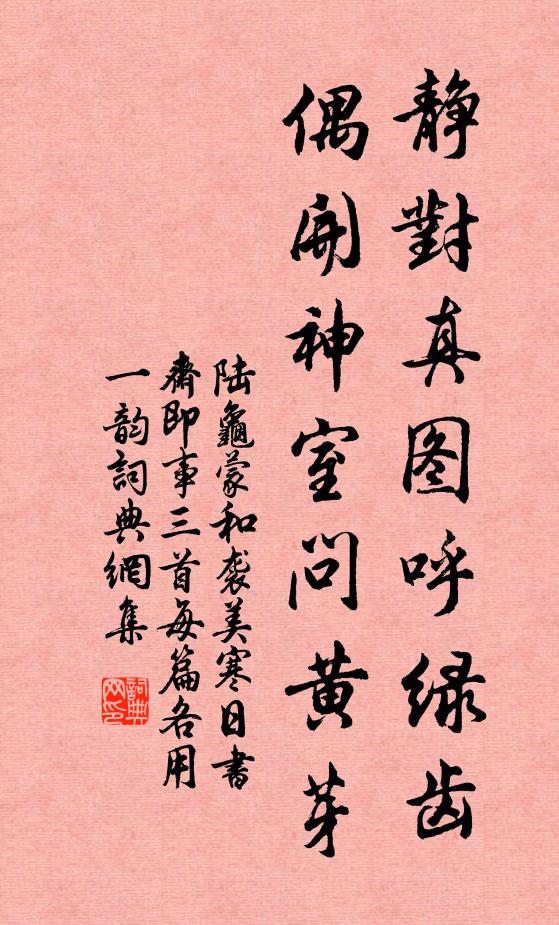 静對真图呼绿齿
偶開神室问黄芽
陆龜蒙和袭美寒日书
齋即事三首每篇各用
一韵詞典網集
詞典
网印